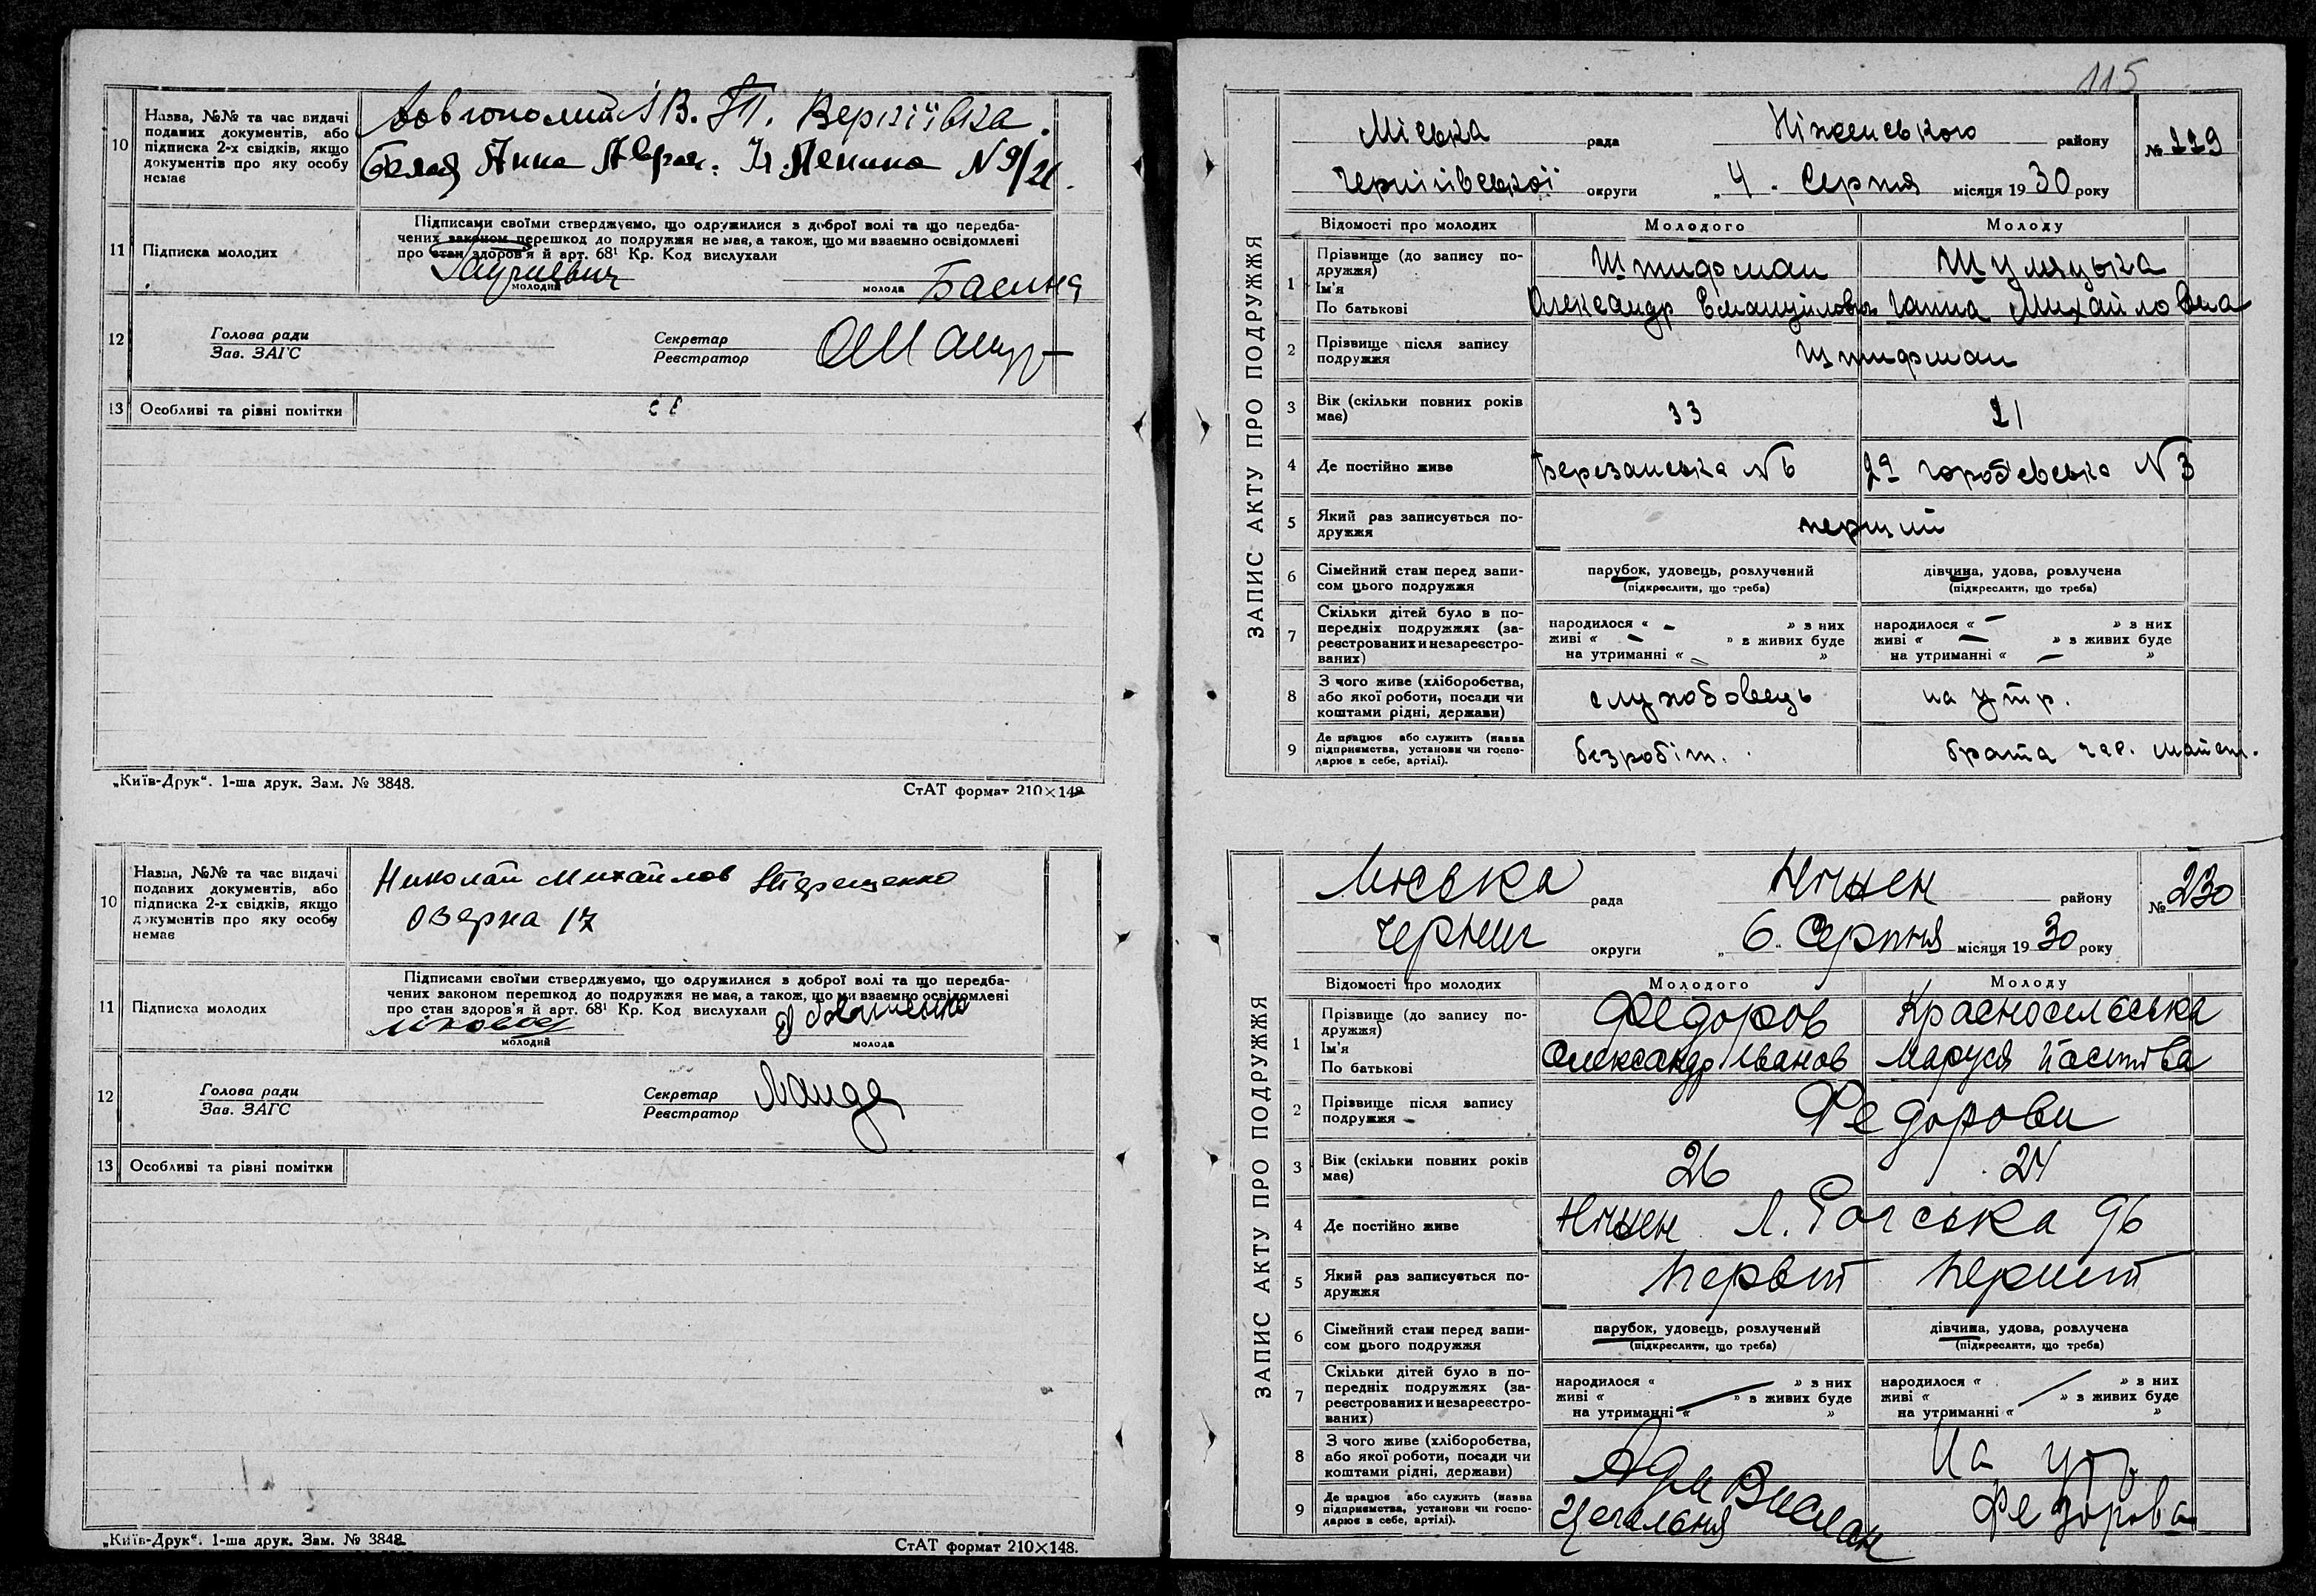 10 Назва, №№ та час видачі
поданих документів, або
підписка 2-х свідків, якщо
документів про яку особу
немає
Довгополий І В. ГП. Вертіївка.
Белая Анна Аврам. Ул Ленина N 9/21.
11 Підписка молодих
Підписами своїми стверджуємо, що одружилися з доброї волі та що передба-
чених законом перешкод до подружжя не має, а також, що ми взаємно освідомлені
про стан здоров'я й арт. 68¹ Кр. Код вислухали
молодий
молода
12 Голова ради
Зав. ЗАГС
Секретар
Реєстратор
13 Особливі та різні помітки
„Київ-Друк“. 1-ша друк. Зам. № 3848.
СтАТ формат 210×148
10 Назва, №№ та час видачі
поданих документів, або
підписка 2-х свідків, якщо
документів про яку особу
немає
Николай Михайлов Терещенко
Озерна 17
11 Підписка молодих
Підписами своїми стверджуємо, що одружилися з доброї волі та що передба-
чених законом перешкод до подружжя не має, а також, що ми взаємно освідомлені
про стан здоров'я й арт. 68¹ Кр. Код вислухали
молодий
молода
12 Голова ради
Зав. ЗАГС
Секретар
Реєстратор
13 Особливі та різні помітки
„Київ-Друк“. 1-ша друк. Зам. № 3848.
СтАТ формат 210×148.
115
ЗАПИС АКТУ ПРО ПОДРУЖЖЯ
Міська рада Ніженського району № 229
Чернігівської округи „ 4 . Серпня місяця 19 30 року
Відомості про молодих Молодого Молоду
1 Прізвище (до запису по-
дружжя)
Ім'я
По батькові
Штифман Шуляцька
Олександр Емануїлович Ганна Михайловна
2 Прізвище після запису
подружжя
Штифман
3 Вік (скільки повних років
має)
33 21
4 Де постійно живе Березанська N 6 N 3
5 Який раз записується по-
дружжя
перший
6 Сімейний стан перед запи-
сом цього подружжя
парубок, удовець, розлучений дівчина, удова, розлучена
(підкреслити, що треба) (підкреслити, що треба)
7 Скільки дітей було в по-
передніх подружжях (за-
реєстрованих и незареєстро-
ваних)
народилося « – » з них народилося « – » з них
живі « – » з живих буде живі « – » з живих буде
на утриманні « – » на утриманні « – »
8 З чого живе (хліборобства,
або якої роботи, посади чи
коштами рідні, держави)
службовець на утр.
9 Де працює або служить (назва
підприємства, установи чи госпо-
дарює в себе, артілі).
безробіт. брата
ЗАПИС АКТУ ПРО ПОДРУЖЖЯ
Міська рада Ніжен району № 230
Черниг округи „ 6 . Серпня місяця 19 30 року
Відомості про молодих Молодого Молоду
1 Прізвище (до запису по-
дружжя)
Ім'я
По батькові
Федоров Красносельська
Олександр Іванов Маруся
2 Прізвище після запису
подружжя
Федорови
3 Вік (скільки повних років
має)
26 24
4 Де постійно живе Ніжен 96
5 Який раз записується по-
дружжя
первий перший
6 Сімейний стан перед запи-
сом цього подружжя
парубок, удовець, розлучений дівчина, удова, розлучена
(підкреслити, що треба) (підкреслити, що треба)
7 Скільки дітей було в по-
передніх подружжях (за-
реєстрованих и незареєстро-
ваних)
народилося « » з них народилося « » з них
живі « » з живих буде живі « » з живих буде
на утриманні « » на утриманні « »
8 З чого живе (хліборобства,
або якої роботи, посади чи
коштами рідні, держави)
На утр.
9 Де працює або служить (назва
підприємства, установи чи госпо-
дарює в себе, артілі).
Цегальня Федорова